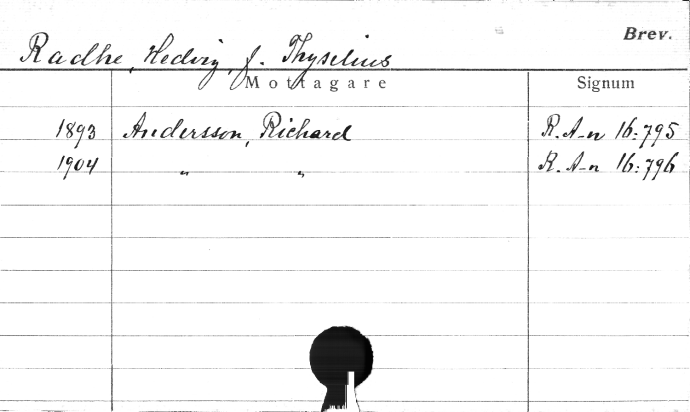 Brev.
Radhe, Hedvig, f. Thyselius
Mottagare Signum
1893 Andersson, Richard R. A-n 16:795
1904 " " R. A-n 16:796